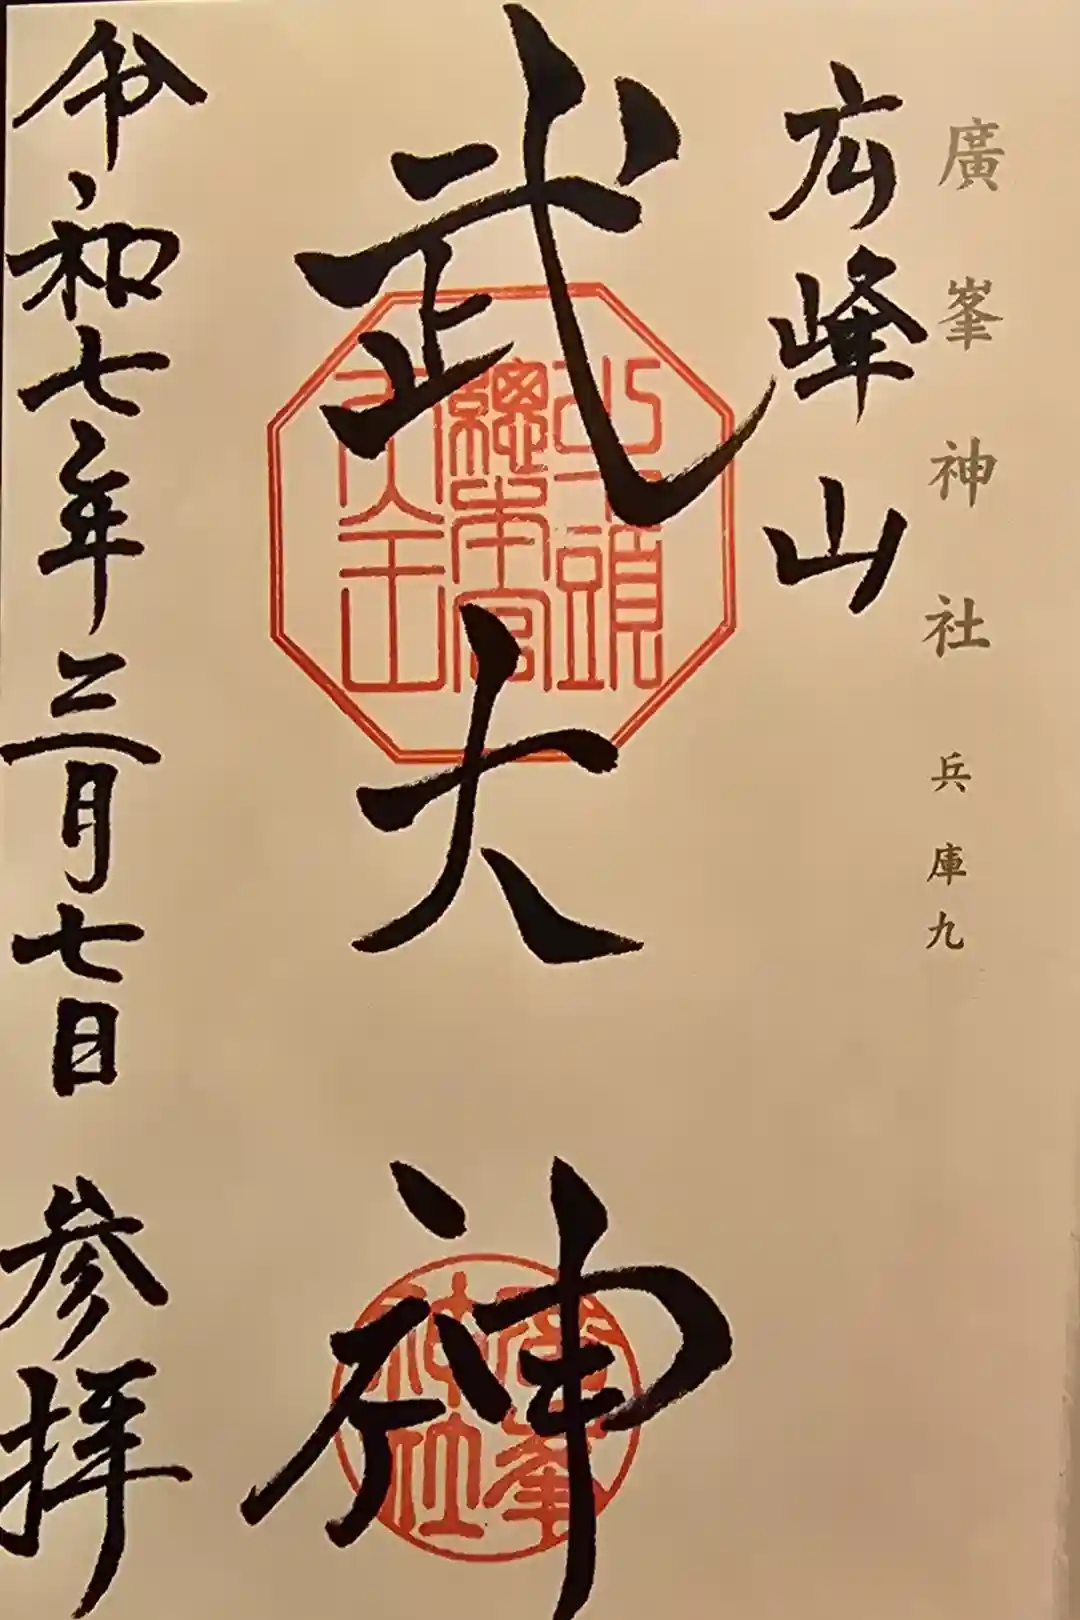 廣峯神社 兵庫九
広峰山
武大神
牛頭
總本宮
天王
廣峯
神社
令和七年三月七日 参拝